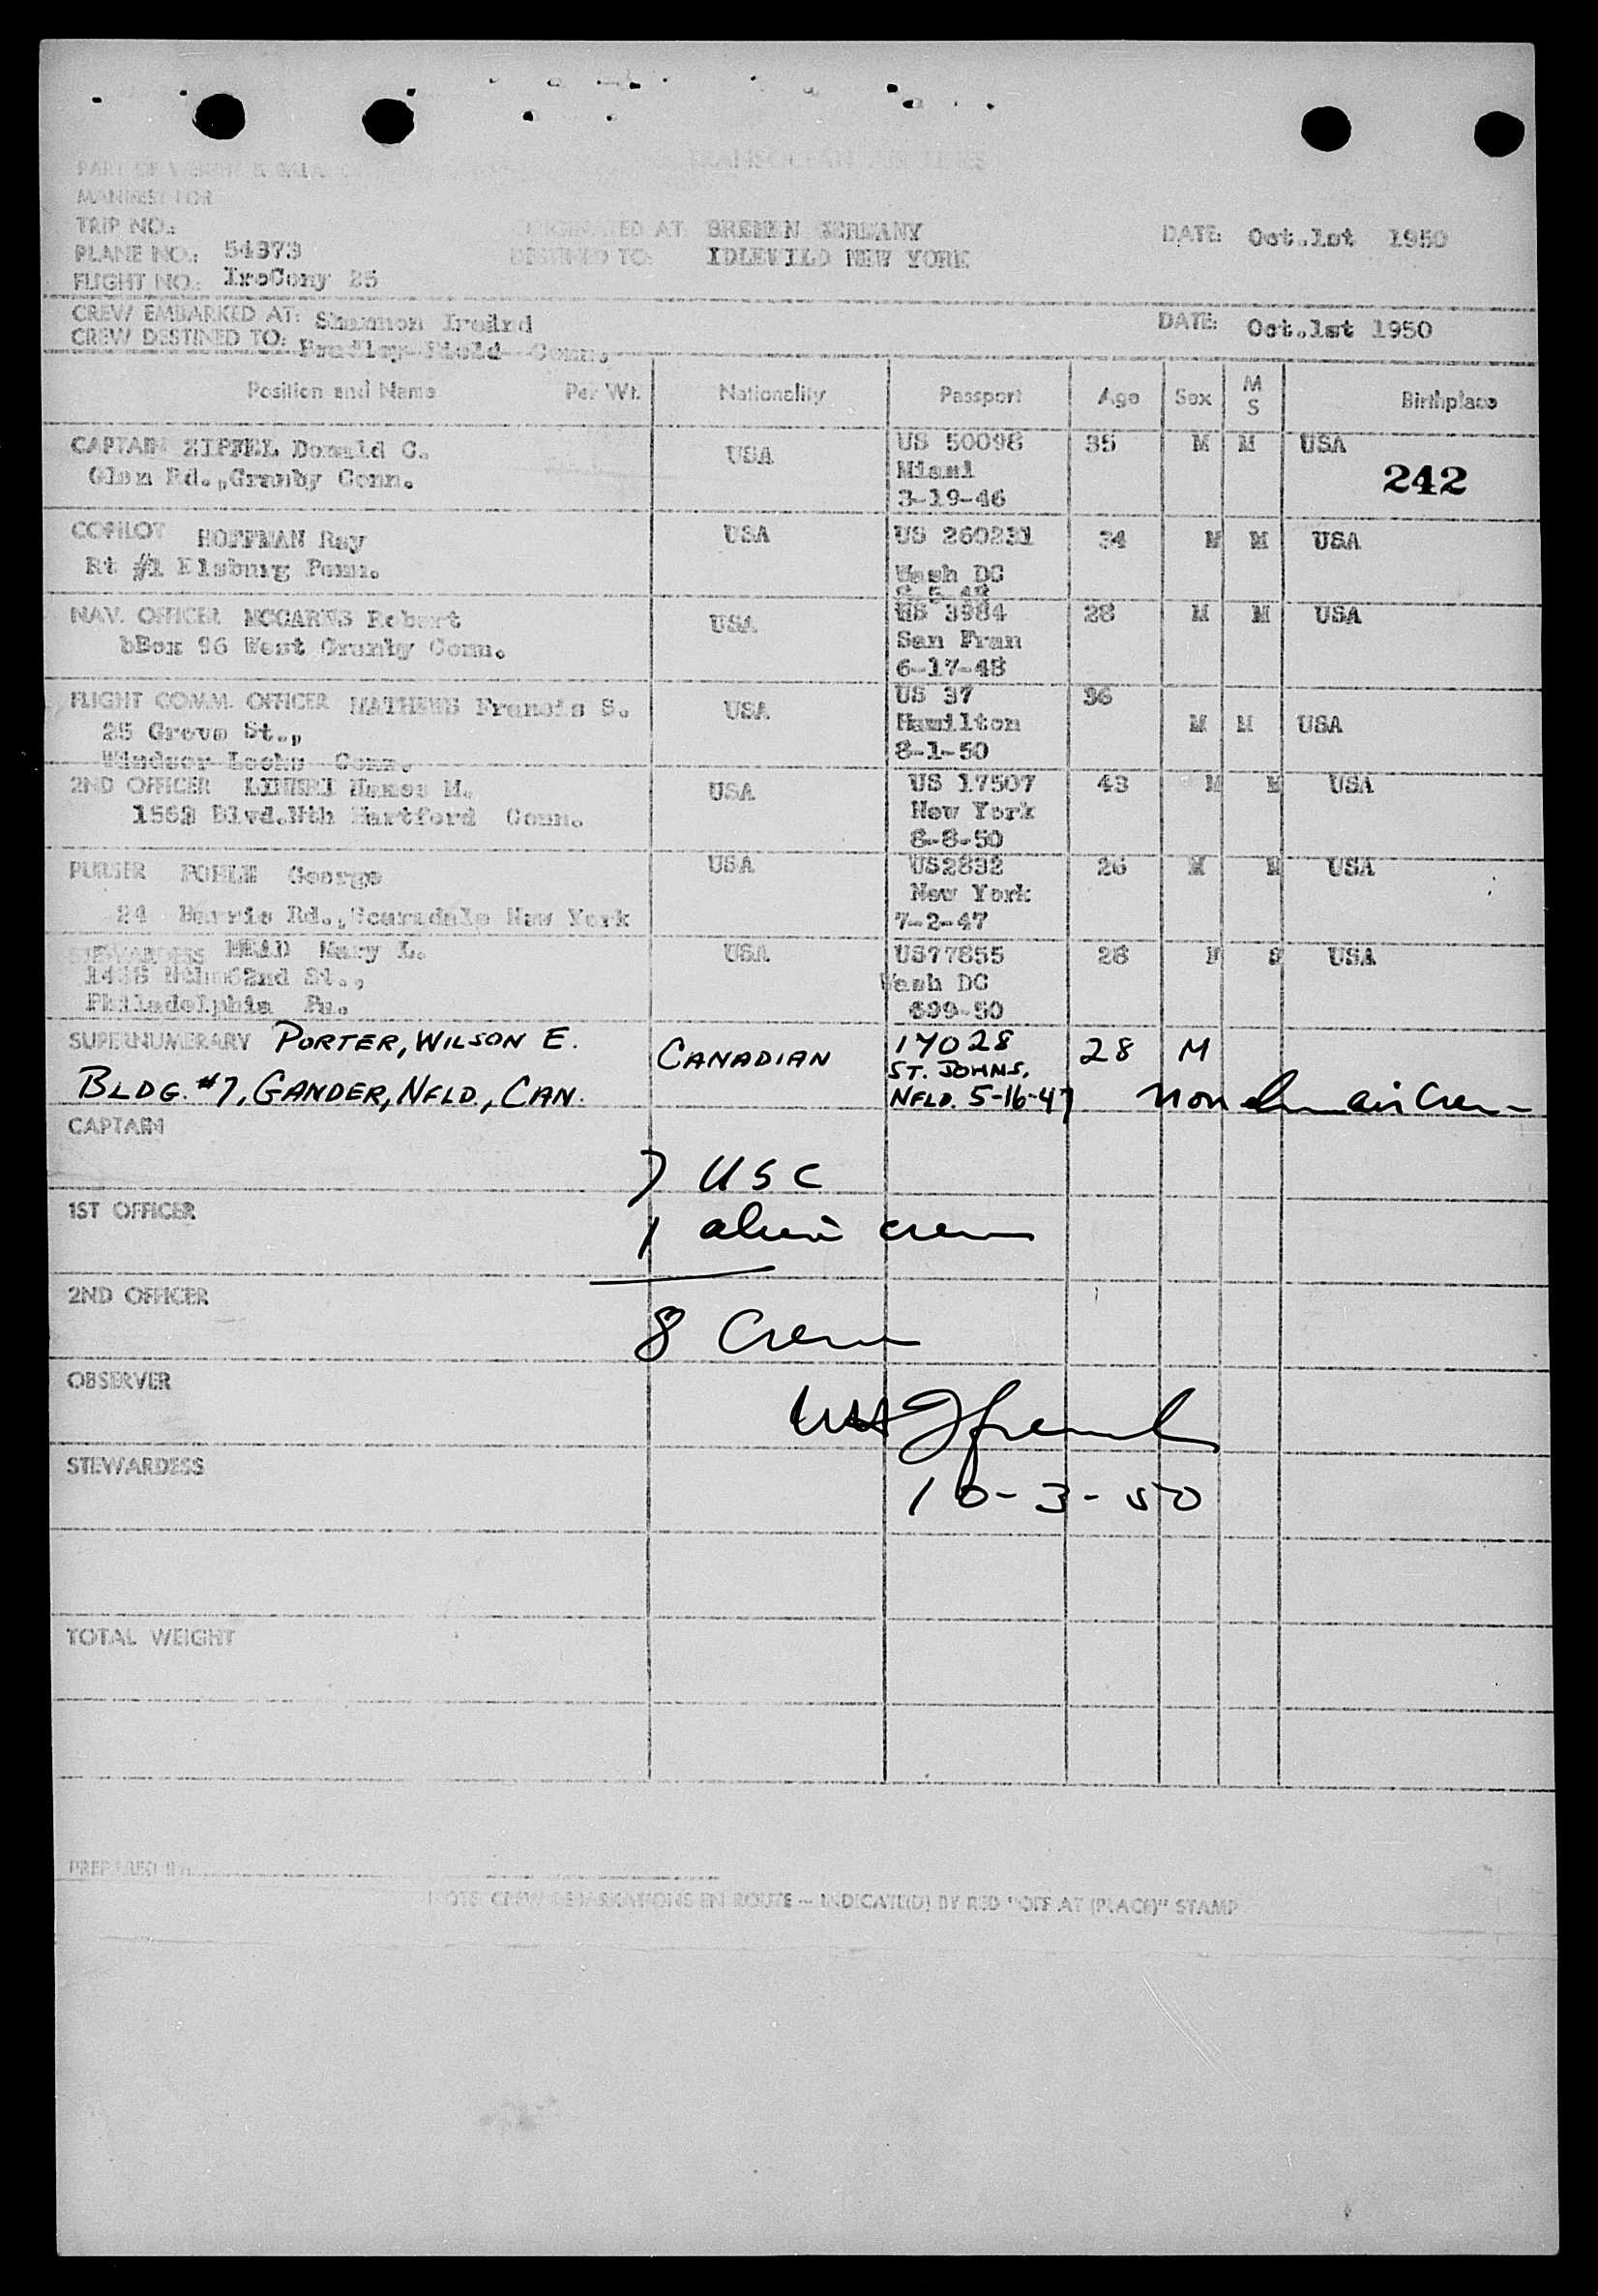 TRANSOCEAN AIR LINES
PART OF WEIGHT & BALANCE
MANIFEST FOR
TRIP NO.:
ORIGINATED AT: BREMEN GERMANY DATE: Oct.1st 1950
PLANE NO.: 54373
DESTINED TO: IDLEWILD NEW YORK
FLIGHT NO.: IroCony 25
CREW EMBARKED AT: Shannon DATE: Oct.1st 1950
CREW DESTINED TO: Field Conn.
Position and Name Per Wt. Nationality Passport Age Sex M S Birthplace
CAPTAIN Donald C. USA US 50098 35 M M USA
Glen Rd.,Granby Conn. Miami 242
3-19-46
COPILOT HOFFMAN Ray USA US 260231 34 M M USA
Rt #1 Penn. Wash DC
NAV. OFFICER Robert USA US 3984 28 M M USA
bBox 96 West Granby Conn. San Fran
6-17-48
FLIGHT COMM. OFFICER MATHEWS Francis S. USA US 37 36 M M USA
25 Grove St., Hamilton
Windsor Locks Conn. 8-1-50
2ND OFFICER M. USA US 17507 43 M M USA
Blvd. Hartford Conn. New York
8-8-50
PURSER George USA US2832 26 M M USA
24 Rd.,Scarsdale New York New York
7-2-47
STEWARDESS HEAD Mary L. USA US77855 28 F S USA
St., Wash DC
Philadelphia Pa. 699-50
SUPERNUMERARY PORTER, WILSON E. CANADIAN 17028 28 M
BLDG. #7, GANDER, NFLD., CAN. ST. JOHNS,
NFLD. 5-16-47 air crew
CAPTAIN
7 USC
1ST OFFICER
1 alien crew
2ND OFFICER
8 Crew
OBSERVER
STEWARDESS
10-3-50
TOTAL WEIGHT
PREPARED BY:
NOTE: CREW DEBARKATIONS EN ROUTE — INDICATE(D) BY RED "OFF AT (PLACE)" STAMP